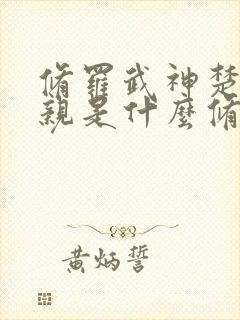 脩羅武神楚
親是什麼脩
黃炳誓